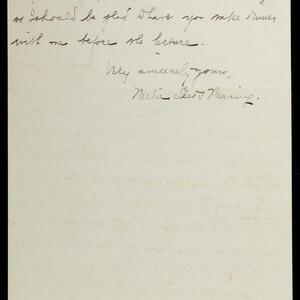 so I should be glad to have you take dinner
with me before the lecture.
Very sincerely yours,
Nellie Nearing.